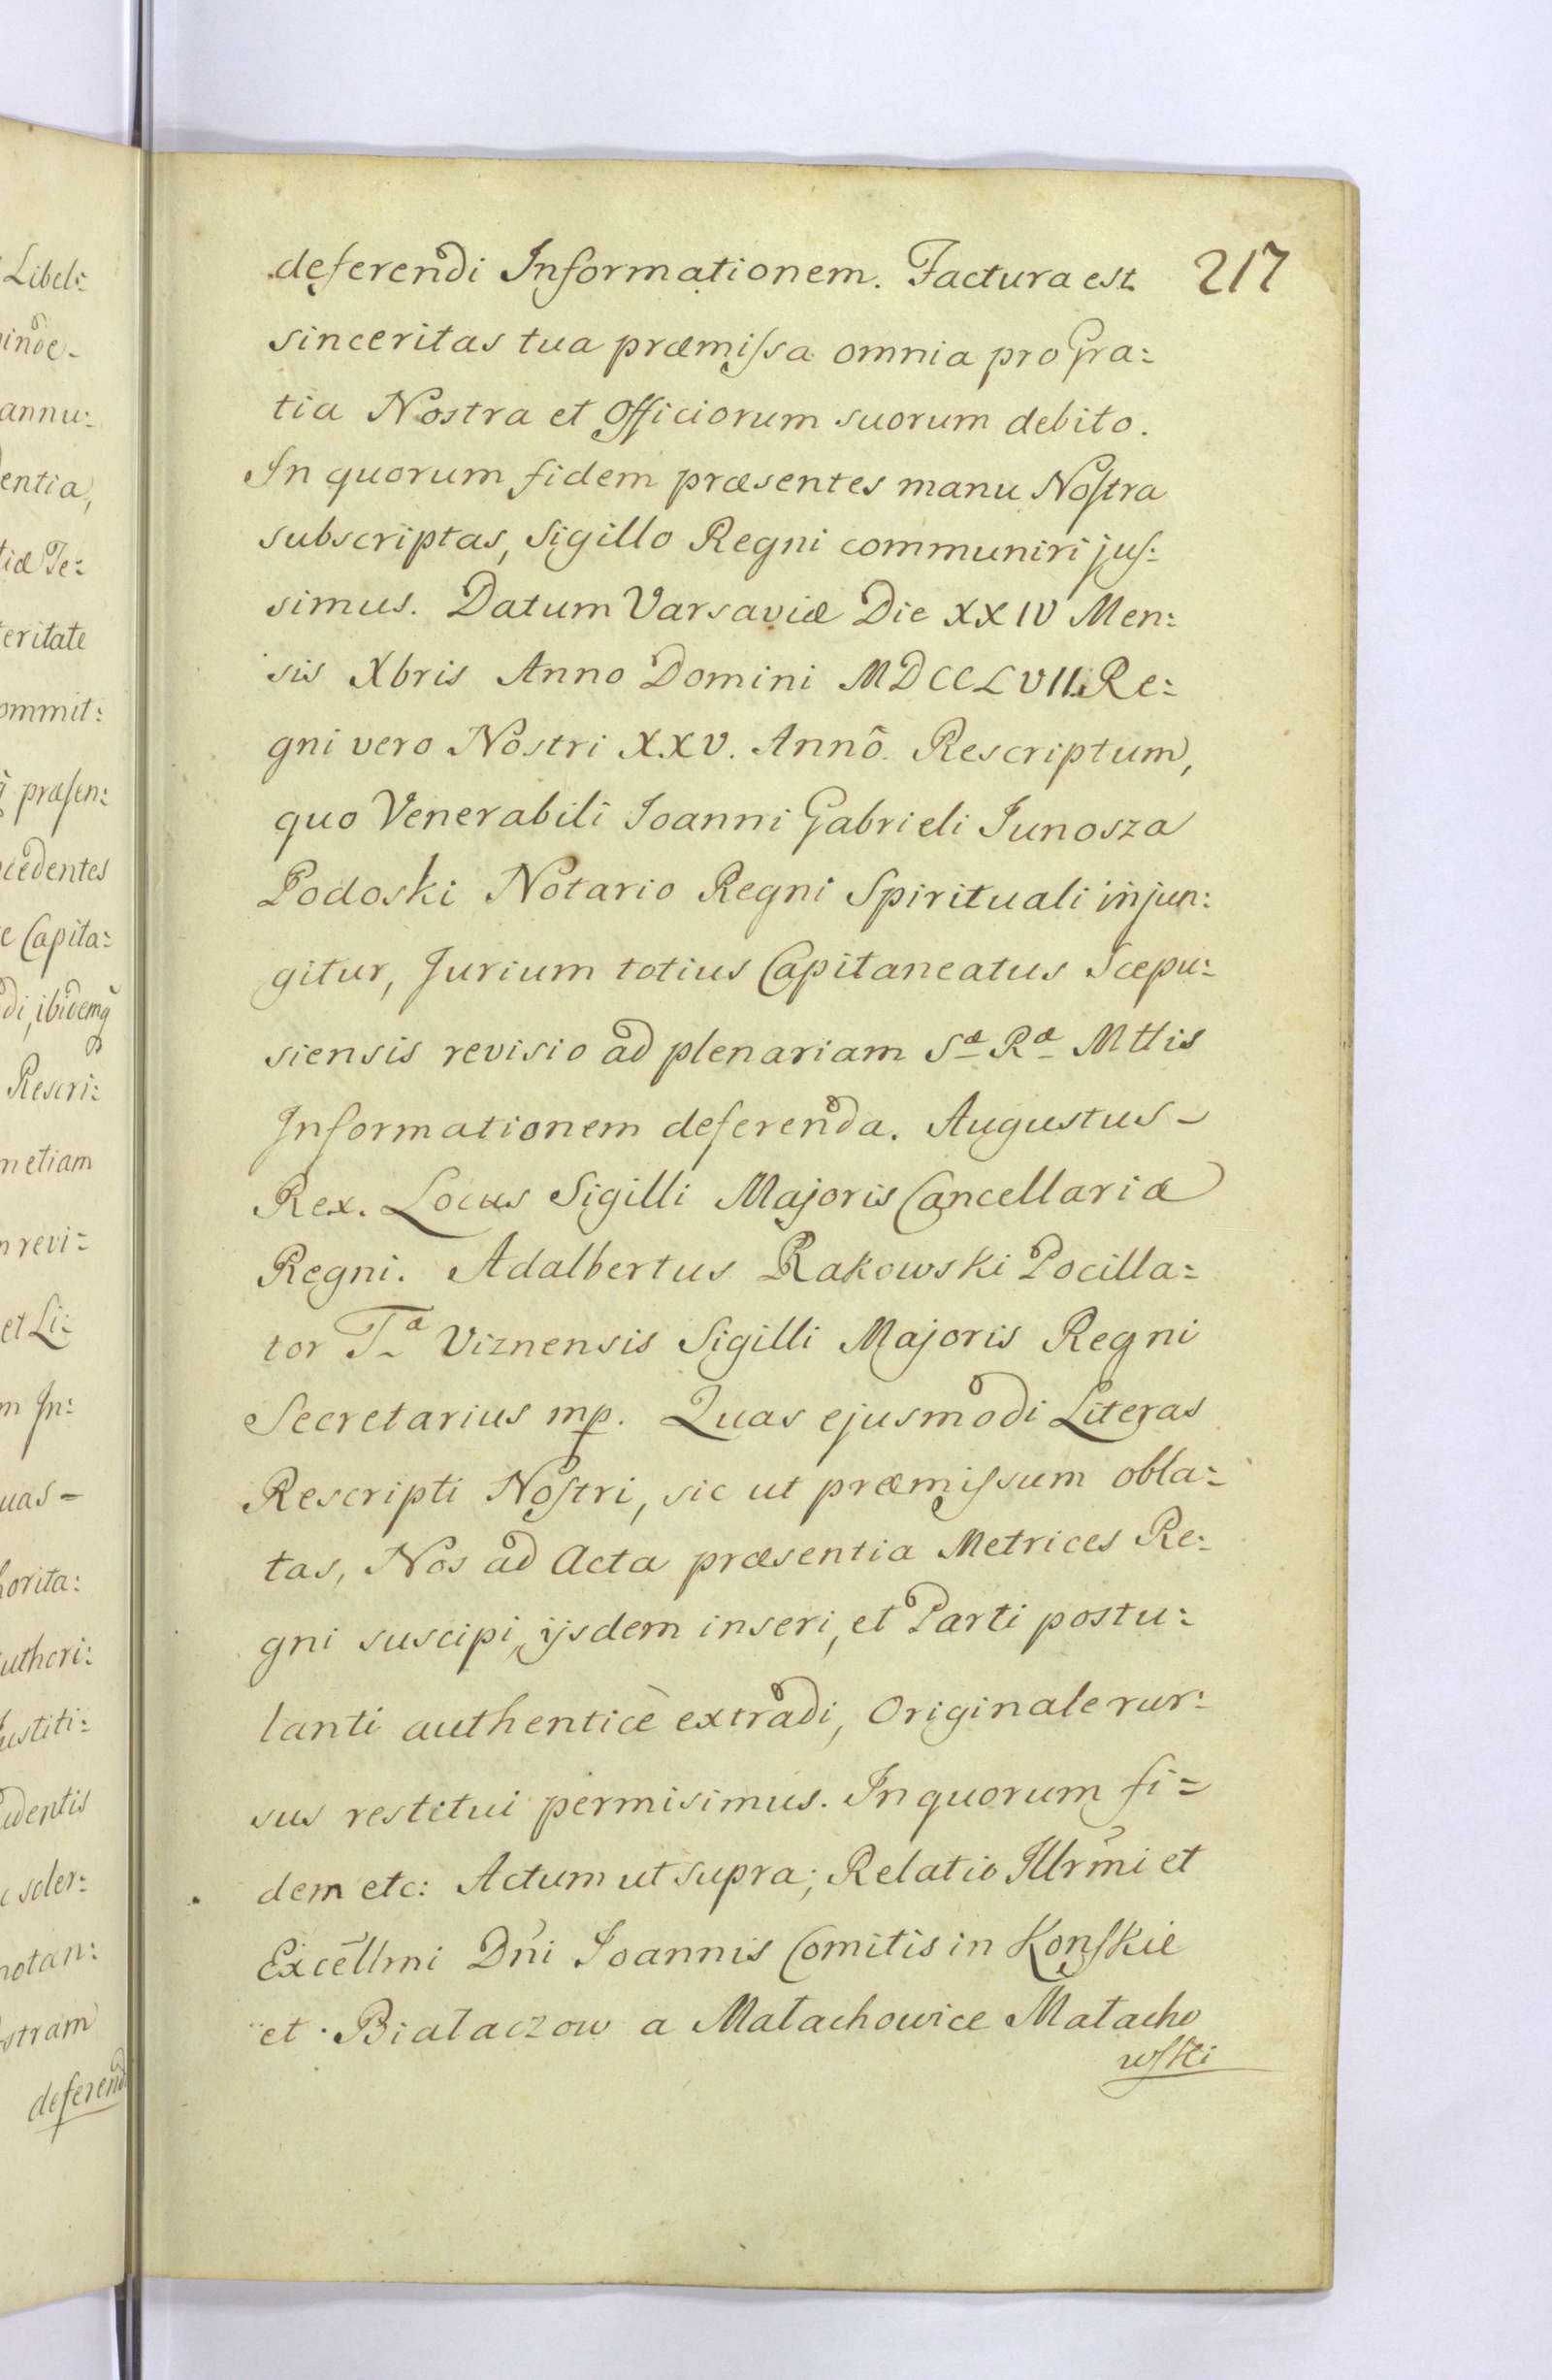 Libel:
inde-
annu:
entia,
tiæ Te:
eritate
ommit:
præsen:
cedentes
e Capita:
di, ibidemq̃
Rescri:
m etiam
n revi:
et Li:
m In:
uas -
horita:
utheri:
ustiti:
identis
soler:
notan:
stram
deferend
217
deferendi Informationem. Factura est
sinceritas tua præmissa omnia pro Gra:
tia Nostra et Officiorum suorum debito.
In quorum fidem præsentes manu Nostra
subscriptas, Sigillo Regni communiri jus:
simus. Datum Varsaviæ Die XXIV Men:
sis Xbris Anno Domini MDCCLVII. Re:
gni vero Nostri XXV. Annõ. Rescriptum,
quo Venerabili Ioanni Gabrieli Iunosza
Podoski Notario Regni Spirituali injun:
gitur, Jurium totius Capitaneatus Scepu:
siensis revisio ad plenariam Sæ Ræ Mttis
Informationem deferenda. Augustus -
Rex. Locus Sigilli Majoris Cancellariæ
Regni. Adalbertus Rakowski Pocilla:
tor Tæ Viznensis Sigilli Majoris Regni
Secretarius mp. Quas ejusmodi Literas
Rescripti Nostri, sic ut præmissum obla:
tas, Nos ad Acta præsentia Metrices Re:
gni suscipi, ijsdem inseri, et Parti postu:
lanti authenticè extradi, Originale rur:
sus restitui permisimus. In quorum fi=
dem etc: Actum ut supra; Relatio Illrm̃i et
Excellm̃i Dñi Ioannis Comitis in Konskie
et Białaczow a Małachowice Małacho
wski